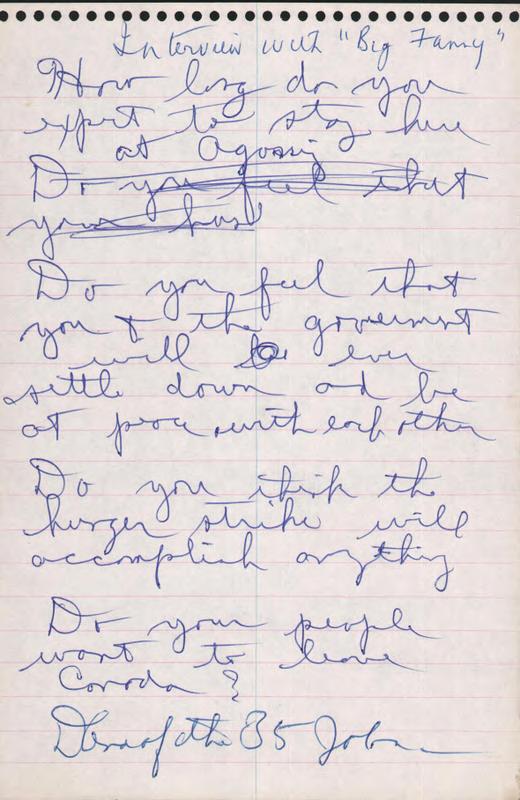 Interview with "Big Fanny"
How long do you
expect to stay here
at Agassiz
Do you feel that
your husb
Do you feel that
you & the government
will be ever
settle down and be
at peace with each other
Do you think the
hunger strike will
accomplish anything
Do your people
want to leave
Canada?
of the 85